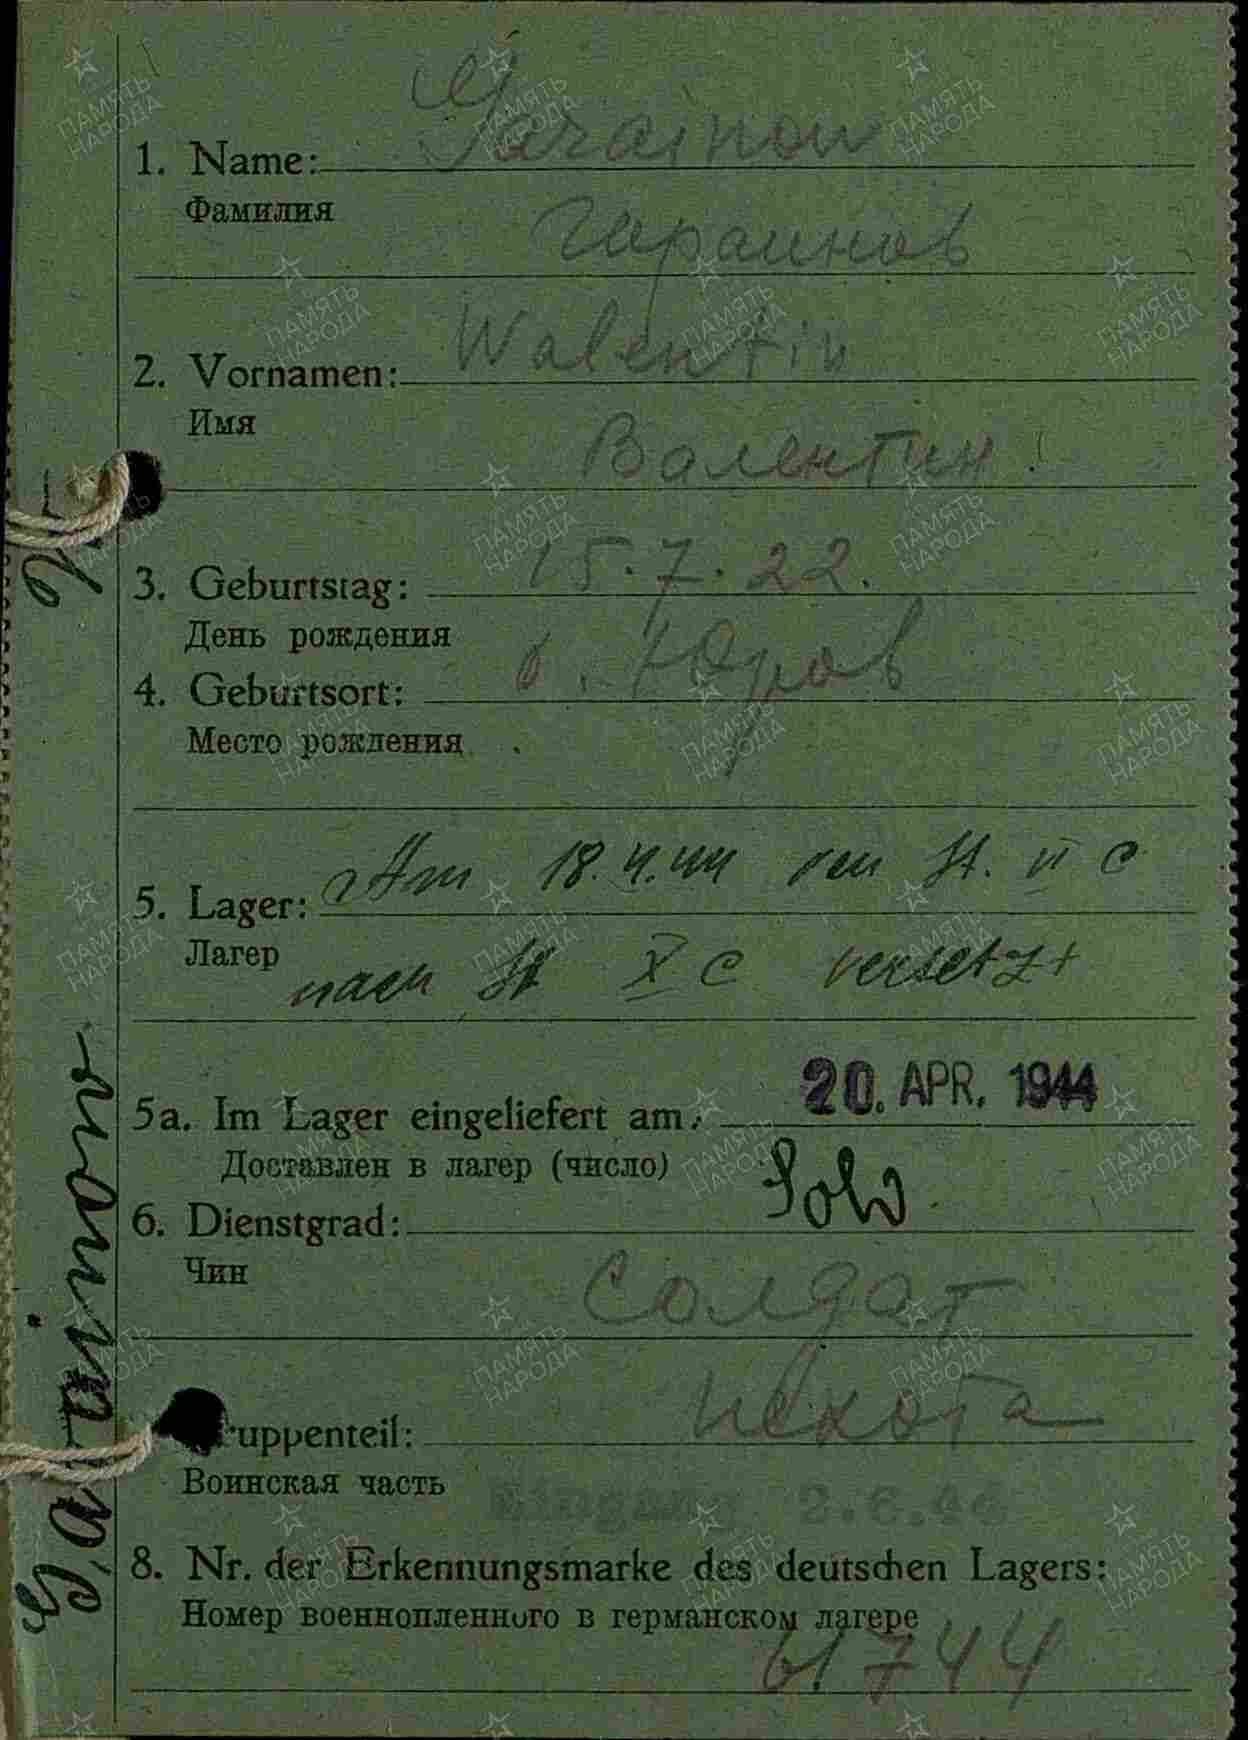 1. Name: Garainow
Фамилия Гараинов
Walentin
2. Vornamen:
Имя Валентин
3. Geburtstag: 15.7.22.
День рождения
4. Geburtsort: Юров
Место рождения
5. Lager: Am 18.4.44 von St. VI C
Лагер nach St X C versetzt
5a. Im Lager eingeliefert am: 20. APR. 1944
Доставлен в лагер (число)
6. Dienstgrad: Sold.
Чин Солдат
ruppenteil: пехота
Воинская часть
Eingang 2.6.44
8. Nr. der Erkennungsmarke des deutschen Lagers:
Номер военнопленного в германском лагере
61744
Garainow
ПАМЯТЬ НАРОДА